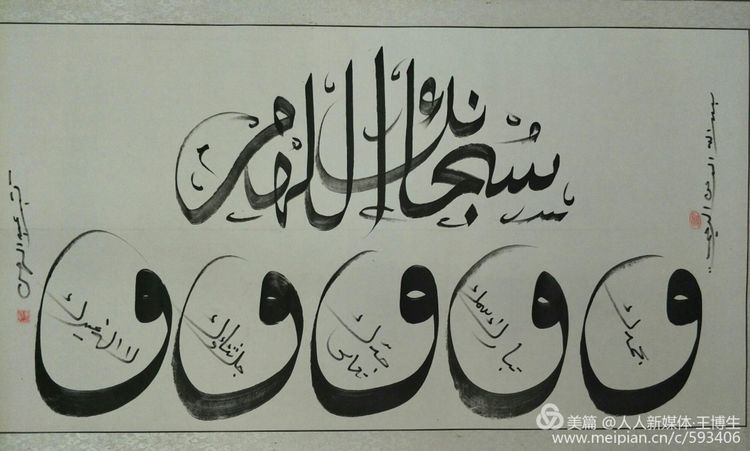 بسم الله الرحمن الرحيم
سُبحانك اللهم
و بحمدك و تبارك اسمك و تعالى جدك و جل ثناؤك و لا اله غيرك
美篇 @人人新媒体·王博生
www.meipian.cn/c/593406